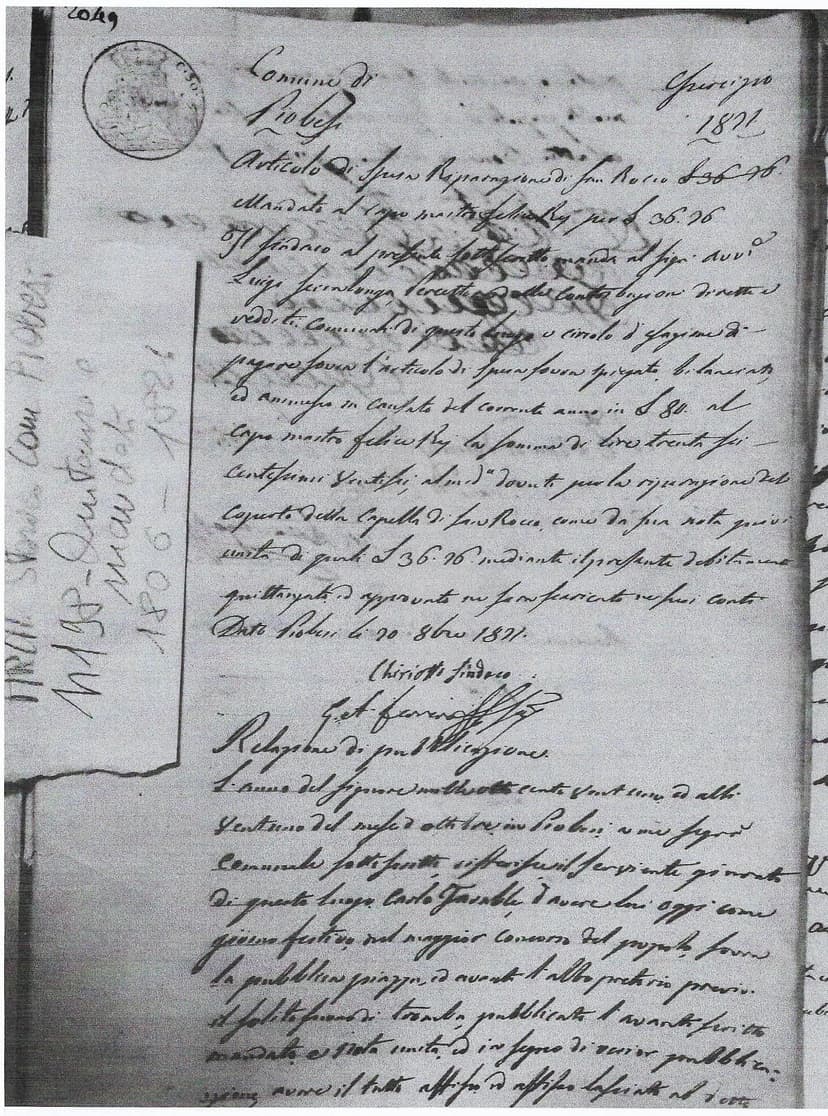 2049
Comune di
Piobesi
Esercizio
1821
Articolo di spesa Riparazione di San Rocco £ 36. 26.
Mandato al capo mastro Felice Rey per £ 36. 26
Il sindaco al presente sottoscritto manda al sigr avv.o
Luigi delle contribuzioni dirette e
redditi comunali di questo luogo e circolo d'esazione di
pagare sovra l'articolo di spesa sovra spiegato, bilanciato,
ed ammesso in causato del corrente anno in £ 80. al
capo mastro Felice Rey la somma di lire trenta sei
centesimi ventisei, al med.o dovuti per la riparazione del
coperto della Capella di San Rocco, come da sua nota quivi
unita di quali £ 36. 26. mediante il presente debitamente
quittanzato ed approvato ne sarà scaricato ne suoi conti
Dato Piobesi li 20 8bre 1821.
Chiriotti Sindaco
Relazione di pubblicazione.
L'anno del signore mille otto cento vent'uno, ed alli
ventuno del mese d'ottobre, in Piobesi, a me segr.o
comunale sottoscritto, il serviente giurato
di questo luogo Carlo d'avere lui oggi come
giorno festivo, nel maggior concorso del popolo, sovra
la pubblica piazza, ed avanti l'albo pretorio previo
il solito suono di tromba, pubblicato l'avanti scritto
mandato, e nota unita, ed in segno di pubblica-
zione, avere il tutto affisso, ed affisso lasciato al detto
ARCH. Storico Com Piobesi
n 198 - Quitanze e
mandati
1806 - 1821